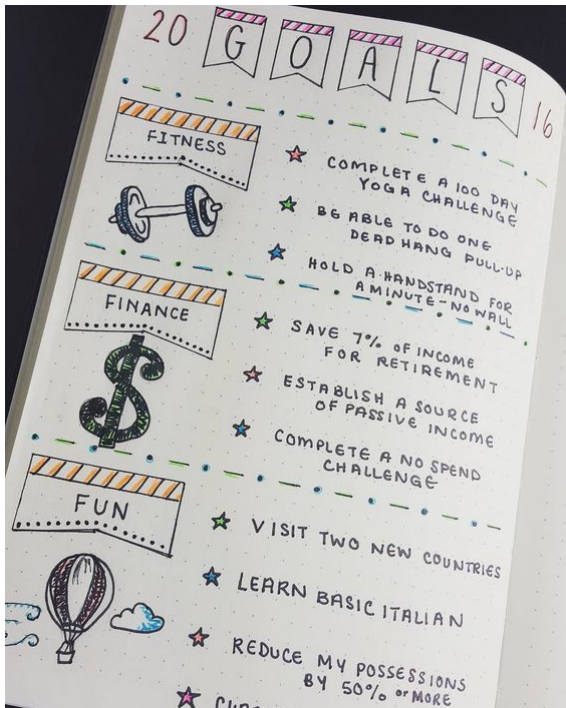 20 GOALS 16
FITNESS
COMPLETE A 100 DAY
YOGA CHALLENGE
BE ABLE TO DO ONE
DEAD HANG PULL-UP
HOLD A HANDSTAND FOR
A MINUTE - NO WALL
FINANCE
$
SAVE 7% OF INCOME
FOR RETIREMENT
ESTABLISH A SOURCE
OF PASSIVE INCOME
COMPLETE A NO SPEND
CHALLENGE
FUN
VISIT TWO NEW COUNTRIES
LEARN BASIC ITALIAN
REDUCE MY POSSESSIONS
BY 50% or MORE